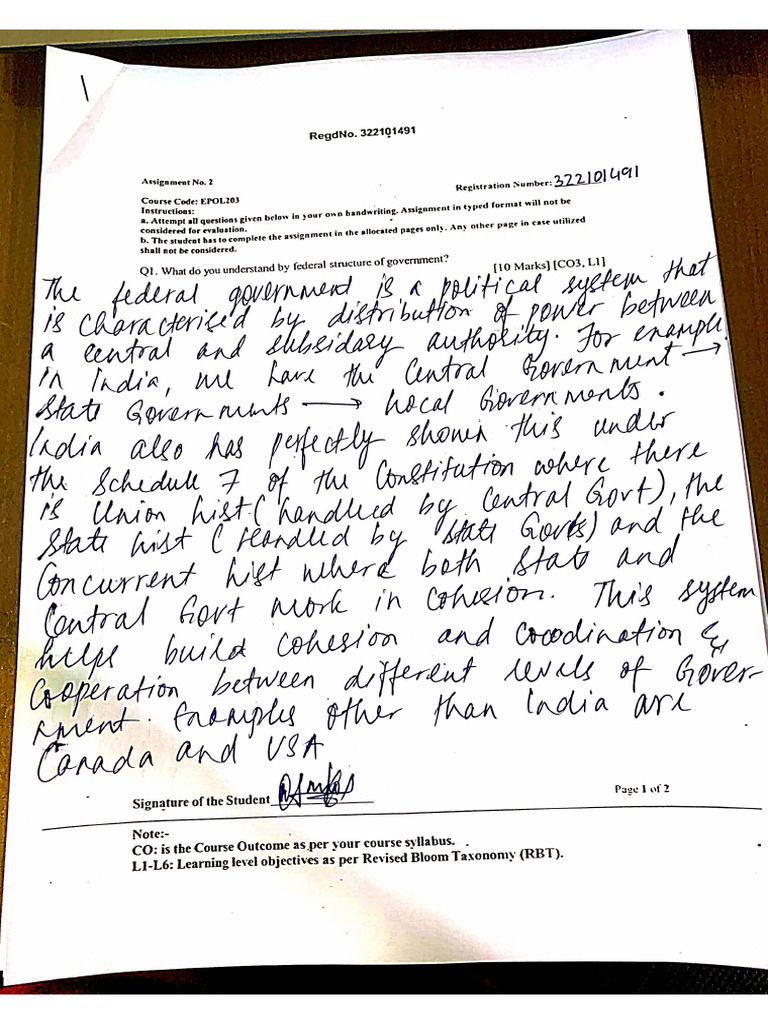 1
RegdNo. 322101491
Assignment No. 2
Registration Number: 322101491
Course Code: EPOL203
Instructions:
a. Attempt all questions given below in your own handwriting. Assignment in typed format will not be
considered for evaluation.
b. The student has to complete the assignment in the allocated pages only. Any other page in case utilized
shall not be considered.
Q1. What do you understand by federal structure of government? [10 Marks] [CO3, L1]
The federal government is a political system that
is characterised by distribution of power between
a central and subsidary authority. For example
in India, we have the Central Government →
State Governments → Local Governments.
India also has perfectly shown this under
the Schedule 7 of the Constitution where there
is Union List (handled by Central Govt), the
State List (Handled by State Govts) and the
Concurrent List where both State and
Central Govt work in cohesion. This system
helps build cohesion and coordination &
cooperation between different levels of Gover-
nment. Examples other than India are
Canada and USA
Signature of the Student
Page 1 of 2
Note:-
CO: is the Course Outcome as per your course syllabus.
L1-L6: Learning level objectives as per Revised Bloom Taxonomy (RBT).